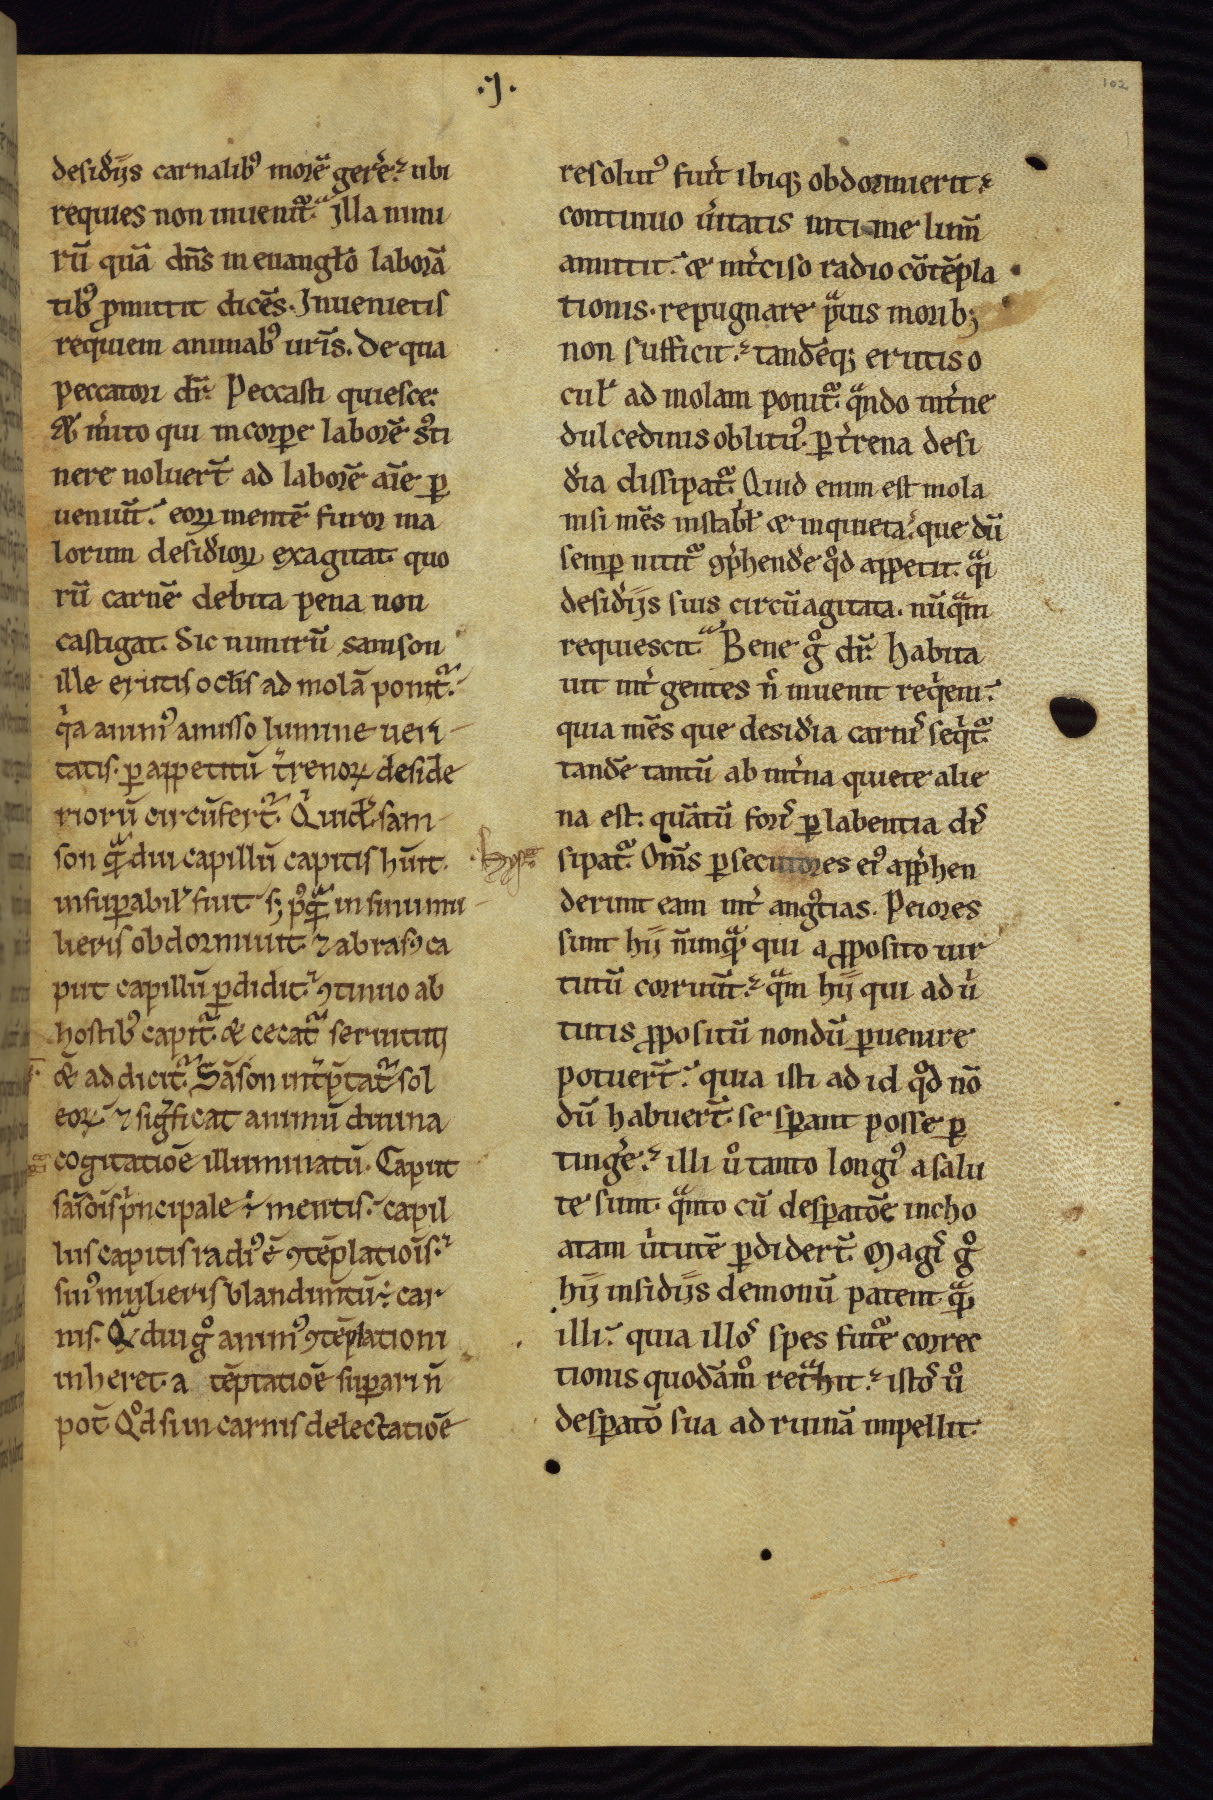 .J.
102
desid̾ijs carnalibꝰ morē ger̾e. ubi
requies non inuenit᷑. Illa nimi
rū quā dn̄s in euangl̄o laborā
tibꝰ ꝓmittit dicēs. Inuenietis
requiem animabꝰ ur̄is. De qua
peccatori dr̄. Peccasti quiesce.
m̾ito qui in corꝑe laborē sꝰti
nere noluer̄t ad laborē aīe ꝑ
ueniūt. eoꝝ mentē furor ma
lorum desid̾ioꝝ exagitat. quo
rū carnē debita pena non
castigat. Sic nimirū samson
ille erutis oc̄lis ad molā ponit᷑.
qͥa animꝰ amisso lumine ueri
tatis. ꝑ appetitū t̾renoꝝ deside
rioru̅ circūfert᷑. Quid.̾ sam
son qᷓ̄diu capillū capitis huit.
insuꝑabil̾ fuit. sꝫ pꝰqᷓ̄ in sinu mu
lieris obdormiuit. ⁊ abrasꝰ ca
put capillū ꝑdidit. ꝯtinuo ab
hostibꝰ capit᷑. & cecat᷑ seruituti
& addicit᷑. Sāson int̾p̄tat᷑ sol
eoꝝ. ⁊ sigͥficat animū diuina
cogitatiōe illuminatū. Caput
sāsōis pͥncipale .i. mentis. capil
lus capitis radiꝰ ē ꝯtēplatiōis.
sinꝰ mulieris blandimtū. car
nis. Qᷓ̄diu gͦ animꝰ ꝯtēplationi
inheret. a tēptatiōe suꝑari n̄
pot̄. Qͦd si in carnis delectatiōe
resolutꝰ fuit̾ ibiqꝫ obdormierit.
continuo u̾itatis intime lum̄
amittit. & int̾ciso radio cōtēpla
tionis. repugnare pᷓuis moribꝫ
non sufficit. tandēqꝫ erutis o
cul̾ ad molam ponit᷑. qᷓndo int̾ne
dulcedinis oblitꝰ. ꝑ t̾rena desi
d̾ia dissipat᷑. Quid enim est mola
nisi mēs instabil̾ & inquieta. que dū
semꝑ nitit᷑ ꝯp̾hend̾e qͦd appetit. qᷓi
desid̾ijs suis circūagitata. nūqᷓm
requiescit. Bene gͦ dr̄. Habita
uit int̾ gentes n̄ inuenit reqͥem.
quia mēs que desid̾ia carnis seqͥt᷑.
tandē tantū ab int̾na quiete alie
na est. quātū foris ꝑ labentia dis
sipat᷑. Om̄s ꝑsecutores eiꝰ app̾hen
derunt eam int̾ angꝰtias. Peiores
sunt hij n̄nunqᷓ̄ qui a ꝓposito uir
tutū corruūt. qᷓm hij qui ad u̾
tutis ꝓpositū nondū ꝑuenire
potuer̄t. quia isti ad id qͦd nō
dū habuer̄t. se sꝑant posse ꝑ
ting̾e. illi uͦ tanto longiꝰ a salu
te sunt. qᷓnto cū desꝑatōe incho
atam u̾tutē ꝑdider̄t. Magis gͦ
hij insidijs demonū patent. qᷓ̄
illi. quia illos spes future correc
tionis quodāmͦ ret̾hit. istos uͦ
desꝑatō sua ad ruinā impellit.